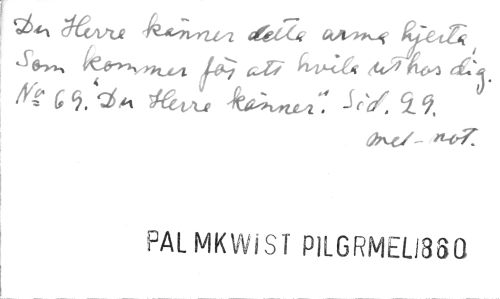 Du Herre känner detta arma hjerta,
Som kommer för att hvila ut hos dig.
No 69. "Du Herre känner". Sid. 99.
mel-not.
PALMKWIST PILGRMEL1860